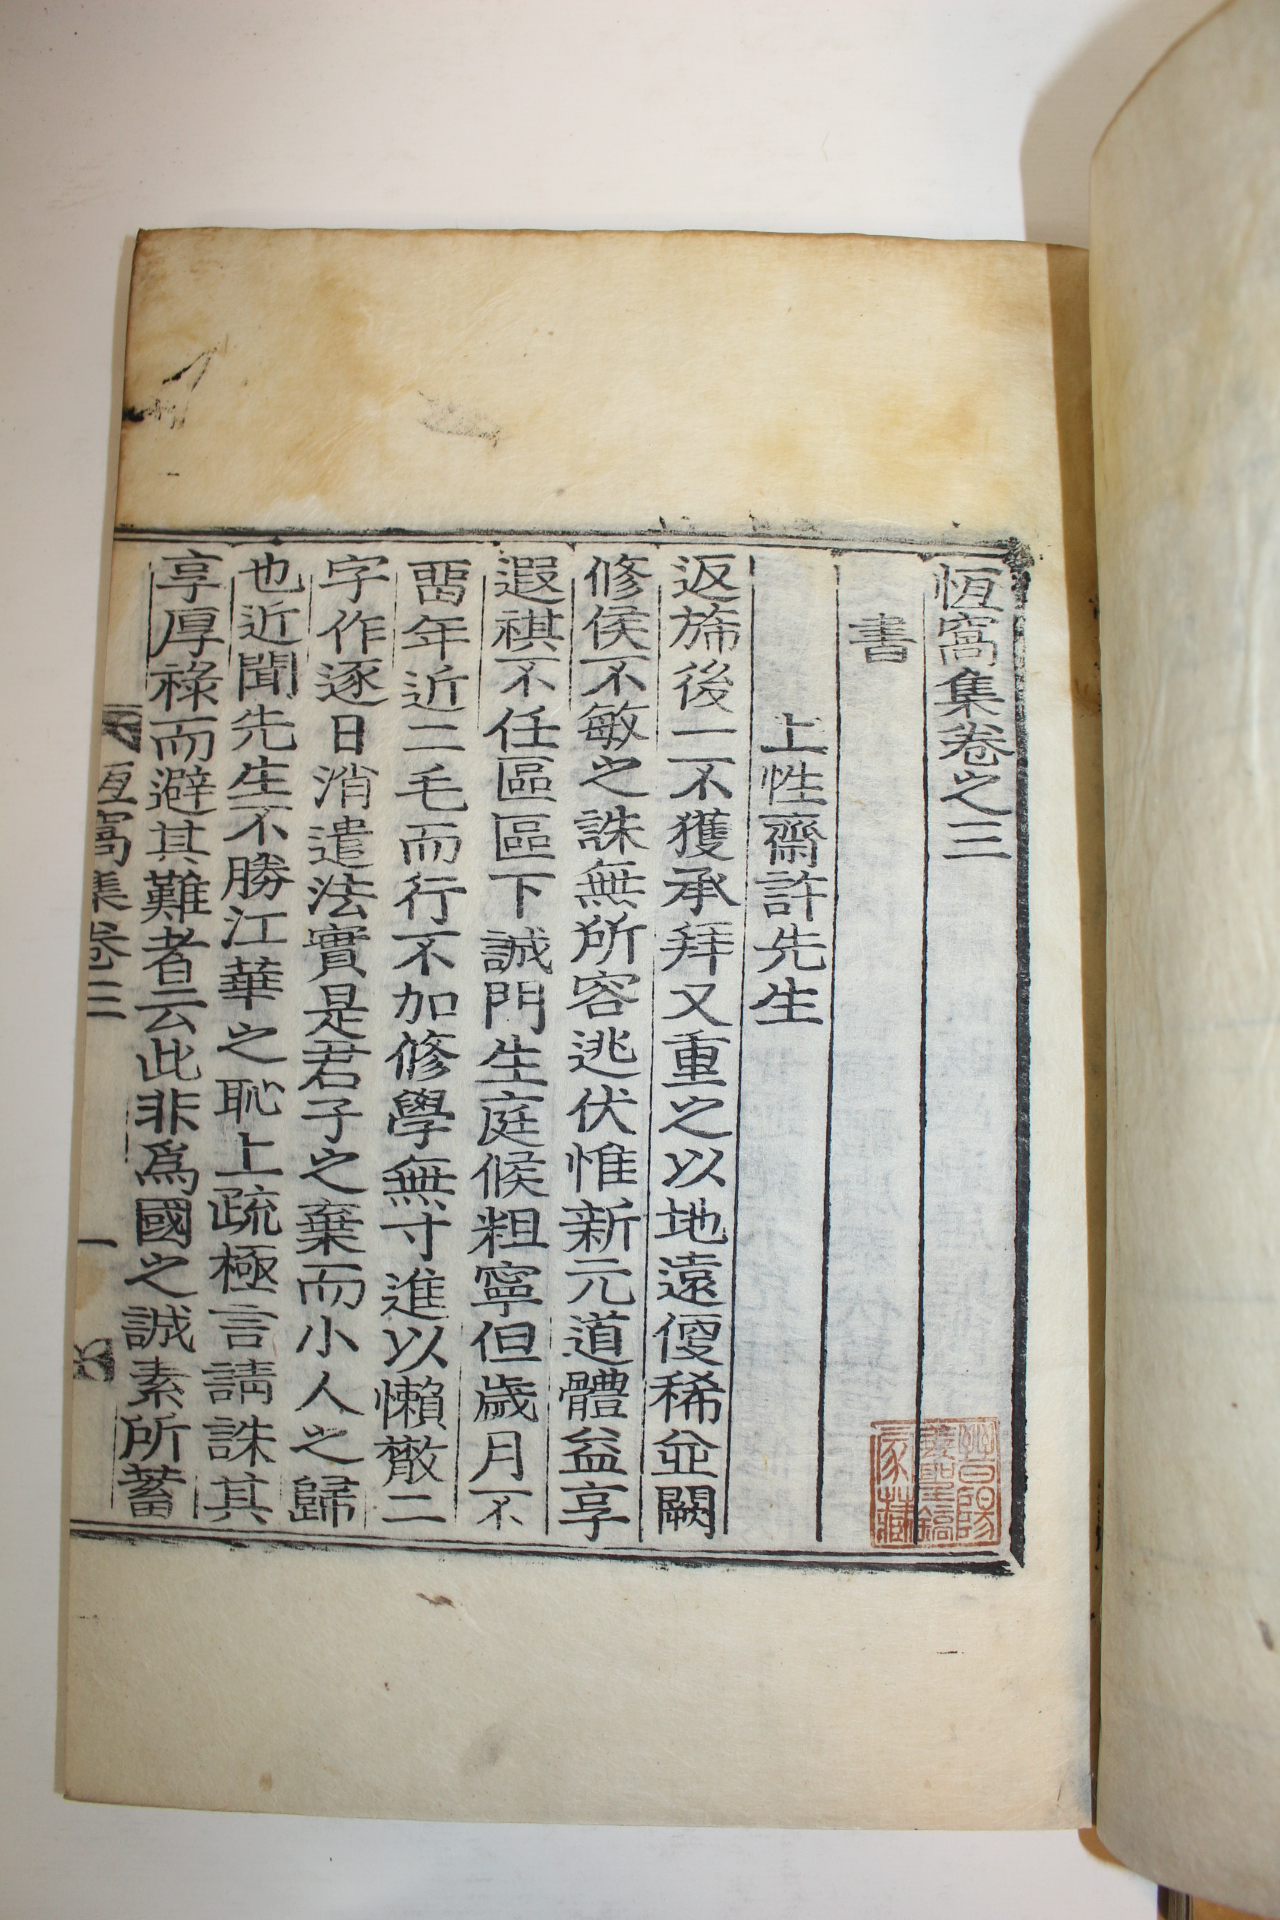 恆窩集卷之三
書
上性齋許先生
返旆後一不獲承拜又重之以地遠便稀並闕
修候不敏之誅無所容逃伏惟新元道體益享
遐祺不任區區下誠門生庭候粗寧但歲月不
畱年近二毛而行不加修學無寸進以懶散二
字作逐日消遣法實是君子之棄而小人之歸
也近聞先生不勝江華之恥上疏極言請誅其
享厚祿而避其難者云此非爲國之誠素所蓄
恆窩集卷三
一